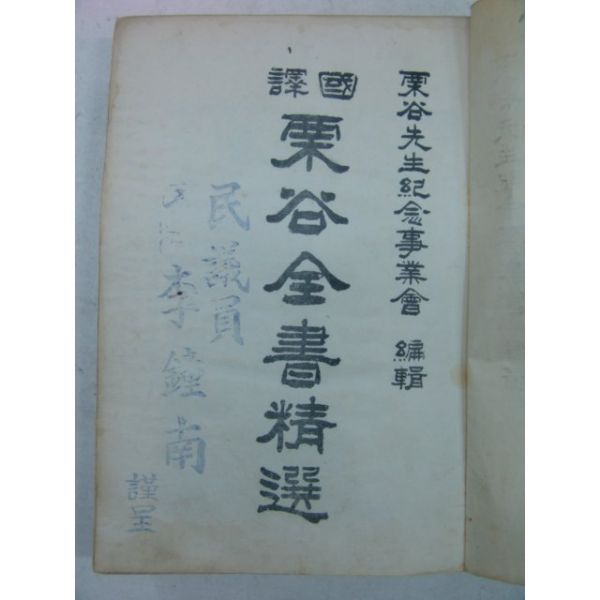 栗谷先生紀念事業會 編輯
國譯
栗谷全書精選
民議員
李鍾南
謹呈